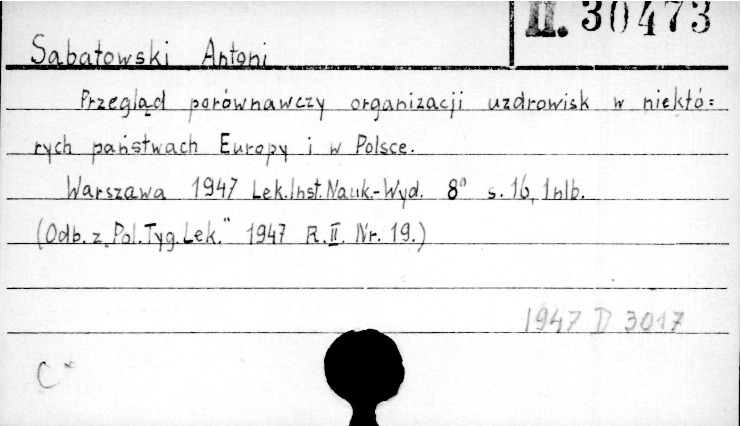 II. 30473
Sabatowski Antoni
Przegląd porównawczy organizacji uzdrowisk w niektó=
rych państwach Europy i w Polsce.
Warszawa 1947 Lek.Inst.Nauk.-Wyd. 8° s. 16, 1nlb.
(Odb. z „Pol.Tyg.Lek." 1947 R.II. Nr. 19.)
1947 D 3017
C*